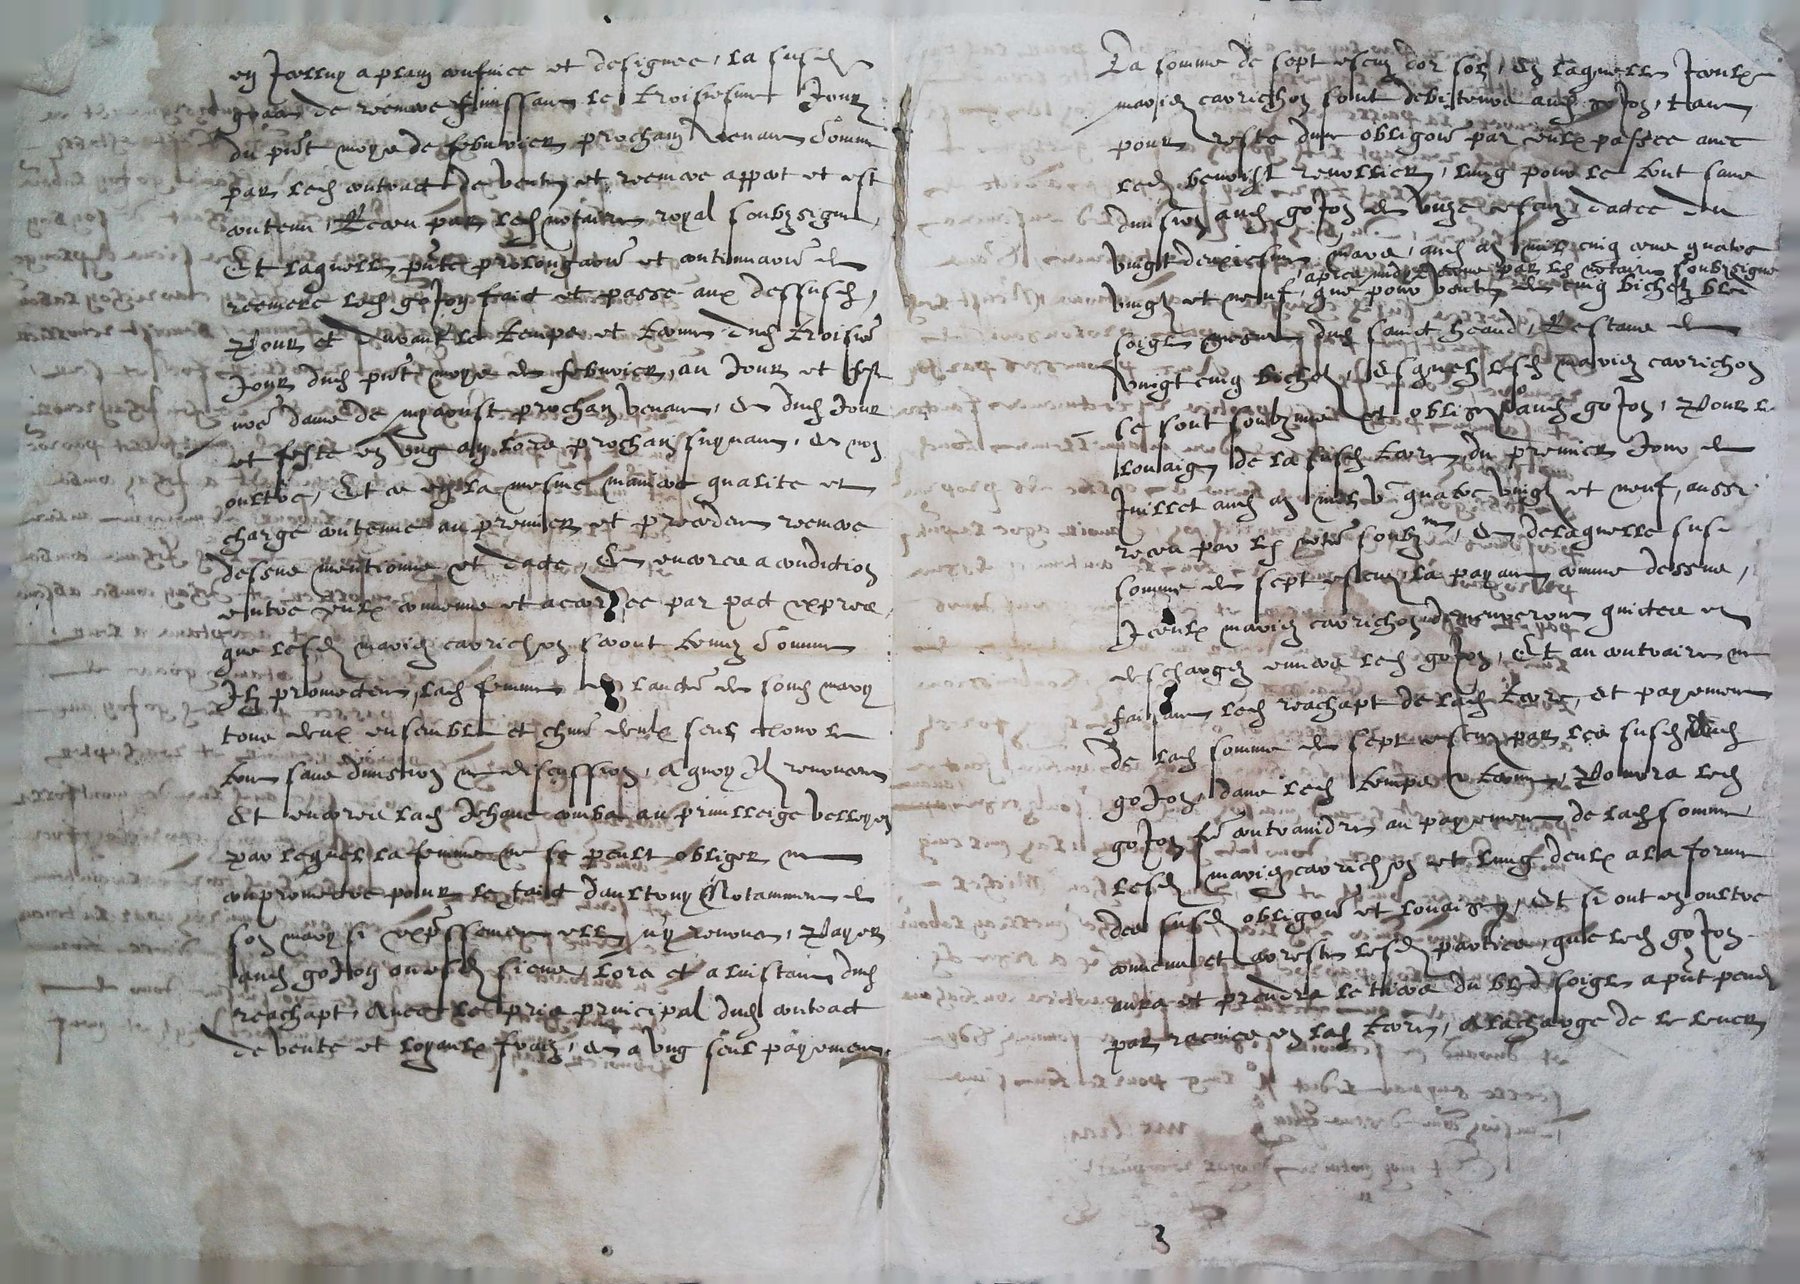 en Icelluy a plain confinee et designee, la susd
grace de reemere finissant le troisiesme Jour
du pnt moys de febvrier prochain venant Comme
par led contract de vente et reemere appert et est
contenu, Receu par led notaire royal soubzsigne,
Et laquelle pnte prolongaon et continuaon de
reemere led goJon faict et passe aux dessusd,
Pour et durant le temps et terme dud troisie
Jour dud pnt moys de febvrier, au Jour et feste
nre dame de myaoust prochain venant, et dud Jour
et feste en ung an lors prochain suyvant, et non
oultre, Et ce en la mesme maniere qualite et
charge contenue au premier et precedent reemere
dessus mentionne et date, Et encores a condiction
entre eulx convenue et accordee par pact expres,
que lesd mariez carrichon seront tenuz Comme
Ilz promectent, lad femme de laucte de sond mary
tous deux ensemble et chun deulx seul et pour le
tout sans division ne discussion, a quoy Ilz renoncent
Et encores lad Jehane combe au privilleige velleyen
par lequel la femme ne se peult obliger ne
compromectre pour le faict daultruy Notamment de
son mary si expressement elle ny renonce, Payer
aud goJon ou esd siens, lors et a linstant dud
reachapt, avec le pris principal dud contract
de vente et loyaulx fraiz, et a ung seul payement,
La somme de sept escuz dor sol, En laquelle Iceulx
mariez carrichon sont debiteurs aud goJon, tant
pour reste dune obligaon par eulx passee avec
led benoist renollier, lung pour le tout sans
division aud goJon de unze escuz datee du
vingt deuxiesme mars, aud an mil cinq cens quatre
vingtz et neuf, que pour vente de cinq bichetz bled
apres midy Receue par led notaire soubzsigne
soigle mesure dud sainct heand, Restans de
vingt cinq bichetz, Esquelz lesd mariez carrichon
se sont soubzmis et obligez aud goJon, Pour le
louaige de la susd terre, du premier Jour de
Juillet aud an mil vc quatre vingtz et neuf, aussi
receu par led notre soubzne, et de laquelle susd
somme de sept escuz, la payant comme dessus,
Iceulx mariez carrichon demeureront quictes et
deschargez envers led goJon, Et au contraire ne
faisant led reachapt de lad terre, et payement
de lad somme de sept escuz par les susd aud
goJon, dans led temps et terme, Pourra led
goJon fe contraindre au payement de lad somme
lesd mariez carrichon et lung deulx a la forme
des susd obligaon et louaige, Et si ont en oultre
convenu et arreste lesd parties, que led goJon
aura et prendra le tiers du bled soigle a pnt pend
par racines en lad terre, a la charge de le lever
3